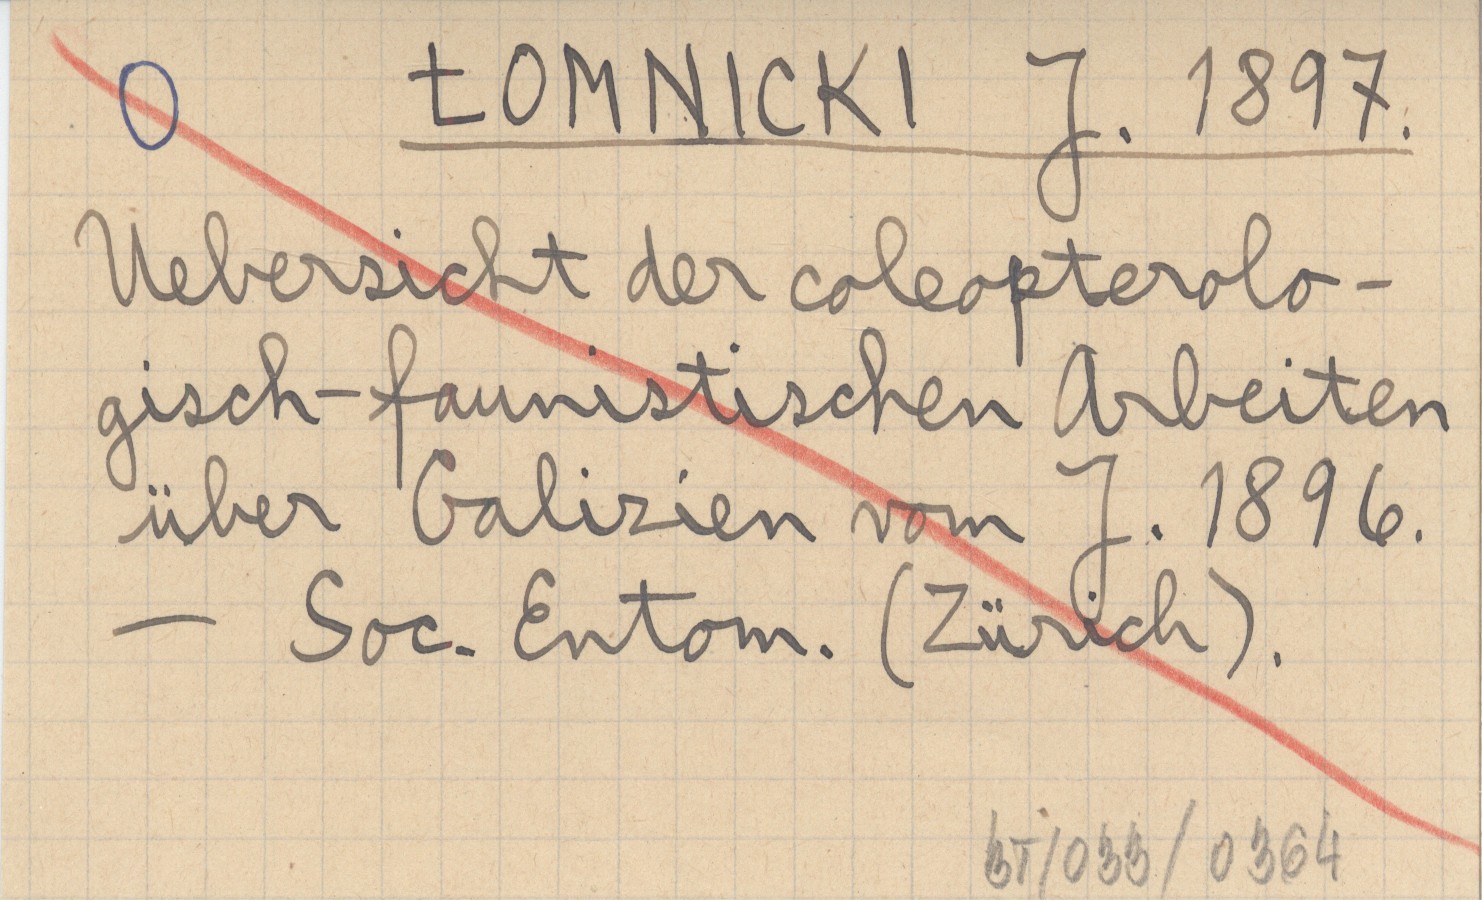 ŁOMNICKI J. 1897.
Uebersicht der coleopterolo-
gisch-faunistischen Arbeiten
über Galizien vom J. 1896.
— Soc. Entom. (Zürich).
BT/033/0364